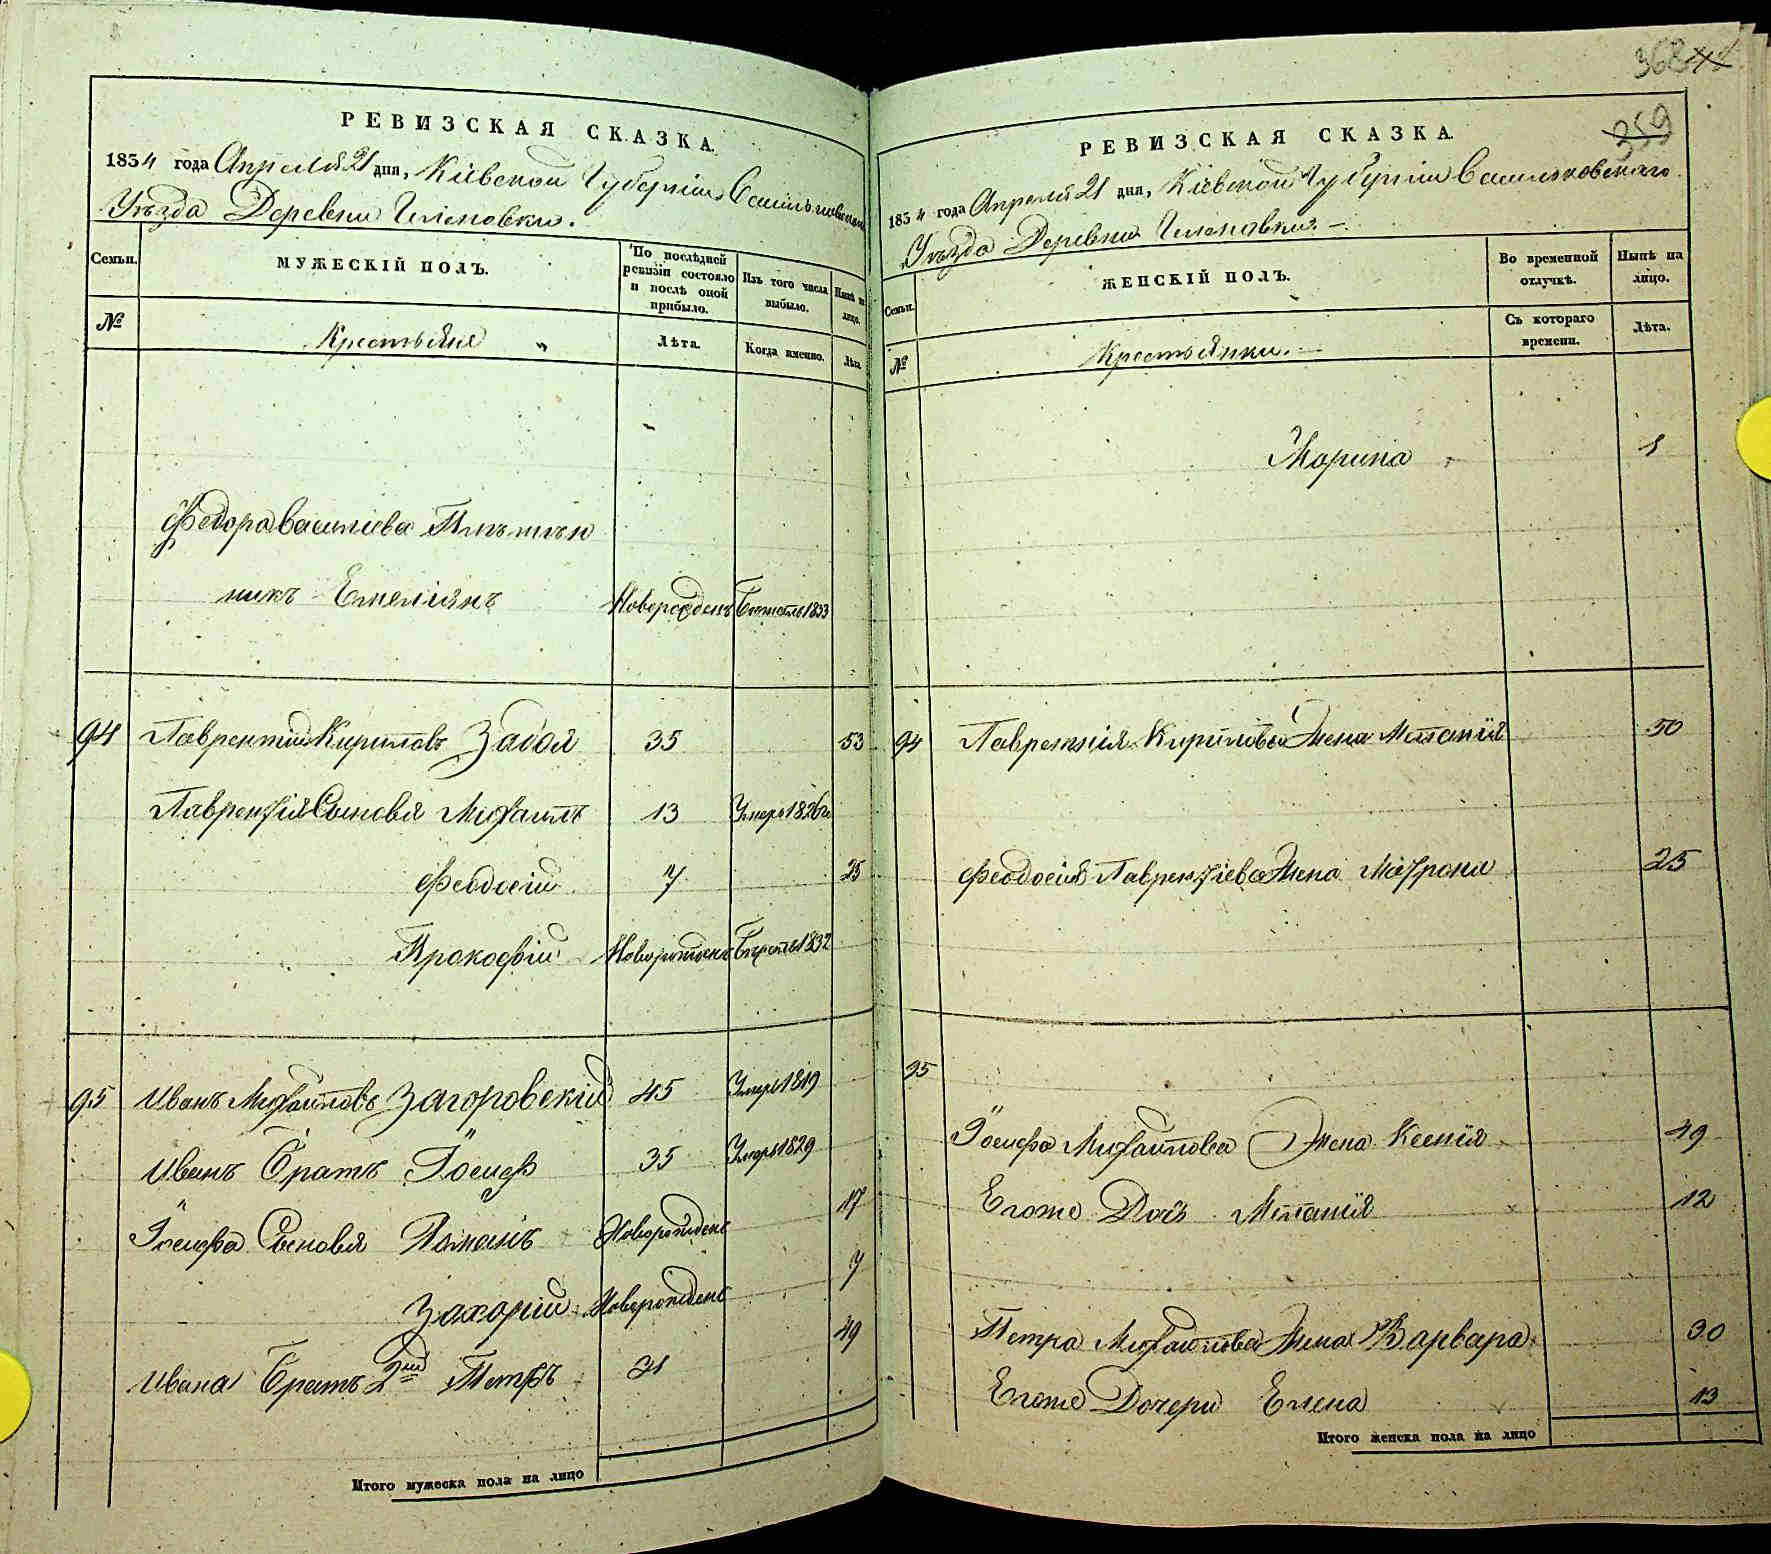 368
259
РЕВИЗСКАЯ СКАЗКА.
1834 года Апреля 21 дня, Кіевской Губерніи Васильковскаго
Уѣзда Деревни
Семьи.
МУЖЕСКІЙ ПОЛЪ.
По послѣдней ревизіи состояло и послѣ оной прибыло.
Изъ того числа выбыло.
Нынѣ на лицо.
№
Крестьяне
Лѣта.
Когда именно.
Лѣта.
Федора Васильева Племян
никъ Емеліянъ Новорожденъ 1833
94 Лаврентій Кириловъ Забоя 35 53
Лаврентія Сыновья Михаилъ 13 Умеръ 1826
Феодосій 7 25
Прокофій Новорожденъ 1832
95 Иванъ Михайловъ Загоровскій 45 Умеръ 1819
Иванъ Братъ Іосифъ 35 Умеръ 1829
Іосифа Сыновья Романъ Новорожденъ 17
Захарій Новорожденъ 7
Ивана Братъ 2й Петръ 31 49
Итого мужеска пола на лицо
РЕВИЗСКАЯ СКАЗКА.
1834 года Апреля 21 дня, Кіевской Губерніи Васильковскаго
Уѣзда Деревни
Семьи.
ЖЕНСКІЙ ПОЛЪ.
Во временной отлучкѣ.
Нынѣ на лицо.
№
Крестьянки.
Съ котораго времени.
Лѣта.
Марина 1
94 Лаврентія Кирилова Жена Меланія 50
Феодосія Лаврентіева Жена Матрона 25
95
Іосифа Михайлова Жена Ксенія 49
Егоже Дочь Меланія 12
Петра Михайлова Жена Варвара 30
Егоже Дочери Елена 13
Итого женска пола на лицо